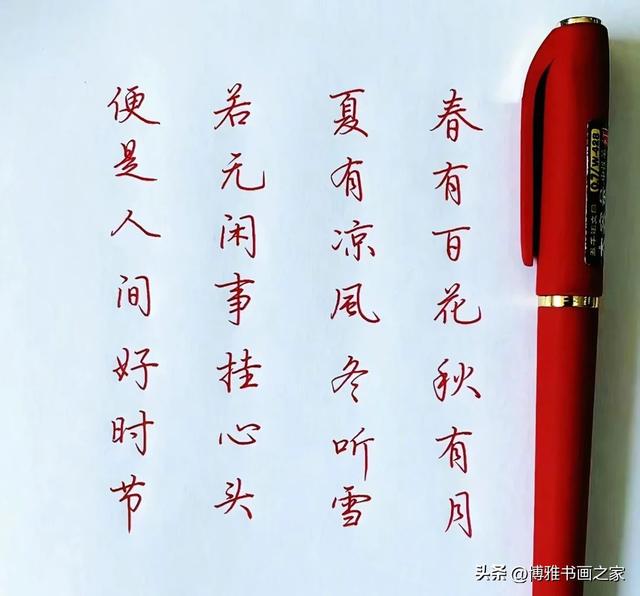 春有百花秋有月
夏有凉風冬听雪
若无闲事挂心头
便是人间好时节
头条 @博雅书画之家